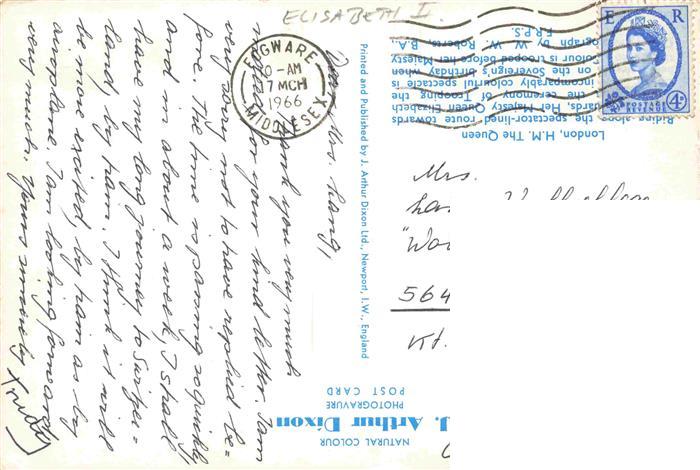 ELISABETH II.
EDGWARE
10-AM
17 MCH
1966
MIDDLESEX
E R
POSTAGE
REVENUE
4D
London, H.M. The Queen
Riding along the spectator-lined route towards
Guards, Her Majesty Queen Elizabeth
the ceremony of Trooping the
on the Sovereign's birthday when
incomparably colourful spectacle is
Colour is trooped before her Majesty
ograph by W. W. Roberts, B.A.,
F.R.P.S.
Printed and Published by J. Arthur Dixon Ltd., Newport, I.W., England
NATURAL COLOUR
J. Arthur Dixon
PHOTOGRAVURE
POST CARD
Mrs.
564
Dear Mrs. Lang,
Thank you very much
indeed for your kind letter. I am
very sorry not to have replied be=
fore. The time is passing so quickly
and in about a week, I shall
have my long journey to Switzer=
land, by train. I think it will
be more exciting by train as by
aeroplane. I am looking forward
very much. Yours sincerely Trudy